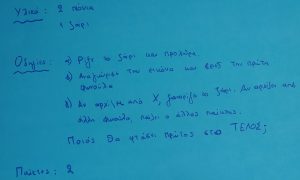 Υλικά: 2 πιόνια
1 ζάρι
Οδηγίες: α) Ρίξε το ζάρι και προχώρα
β) Αναγνώρισε την εικόνα και βρες την πρώτη
συλλαβή
γ) Αν αρχίζει από Χ, ξαναρίξε το ζάρι. Αν αρχίζει από
άλλη συλλαβή, παίζει ο άλλος παίκτης.
Ποιός θα φτάσει πρώτος στο ΤΕΛΟΣ;
Παίκτες: 2